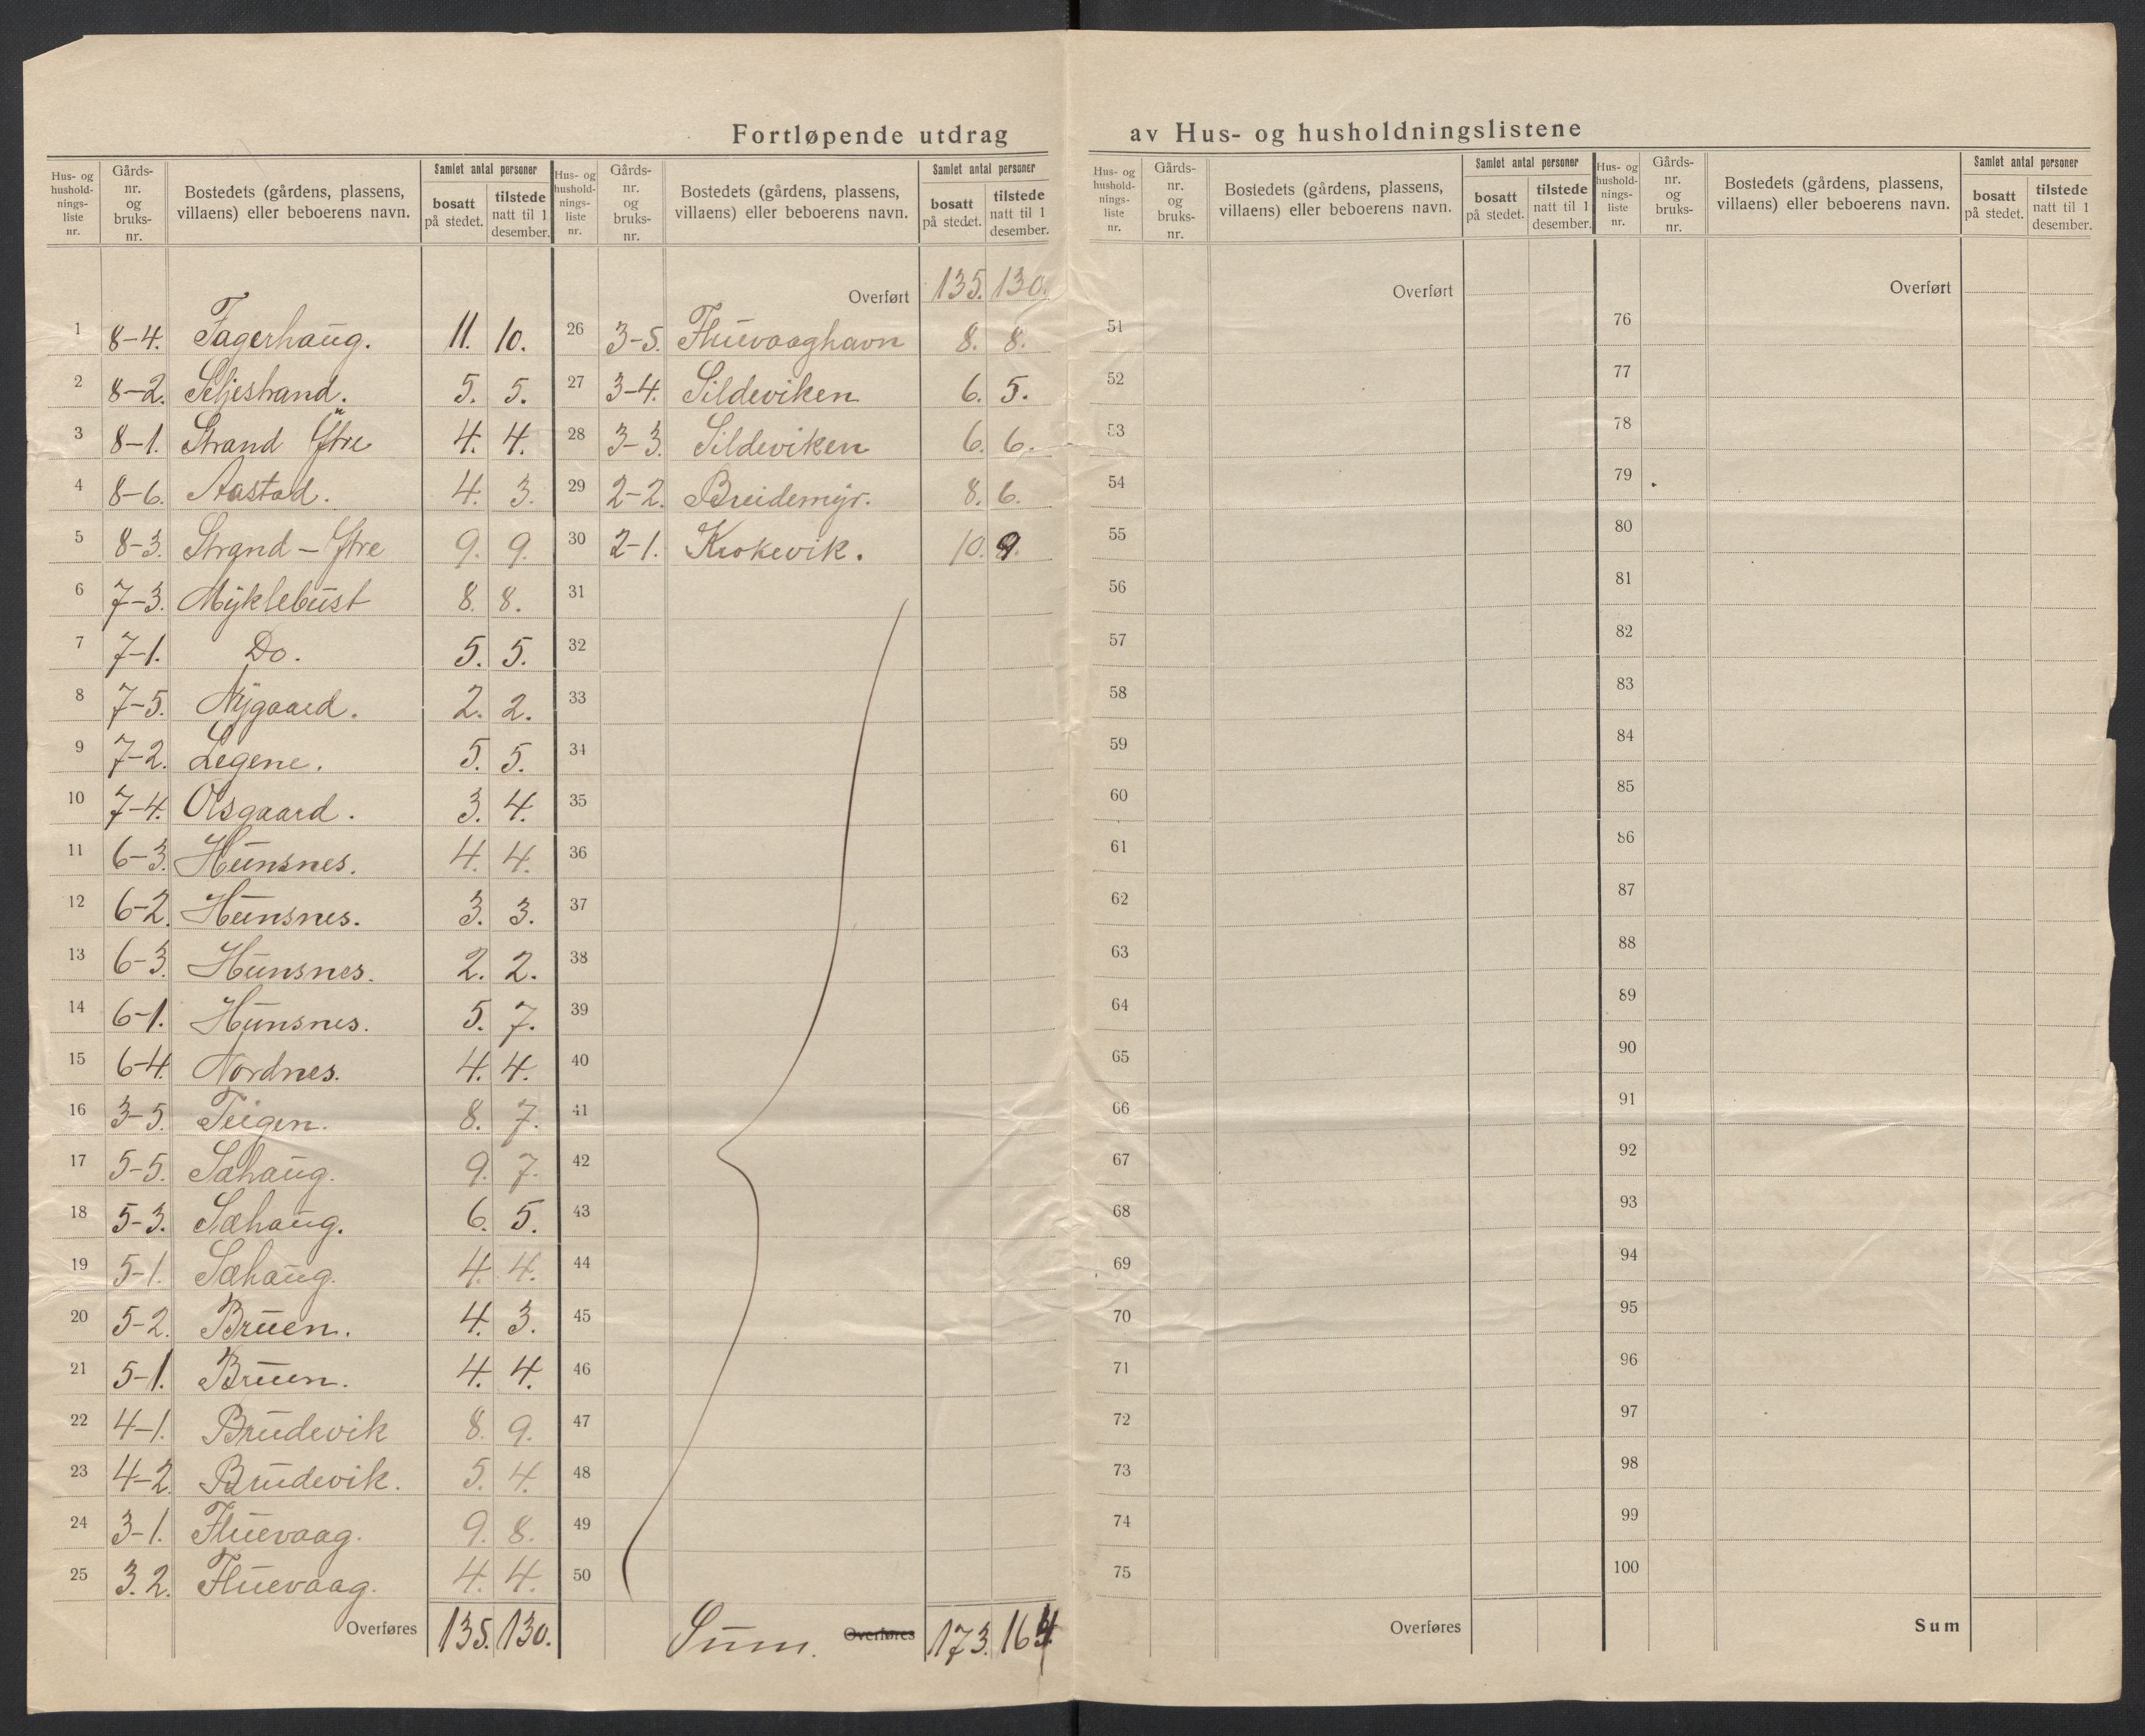 Fortløpende utdrag av Hus- og husholdningslistene
Hus- og hushold-nings-liste nr. Gårds-nr. og bruks-nr. Bostedets (gårdens, plassens, villaens) eller beboerens navn. Samlet antal personer bosatt på stedet. tilstede natt til 1 desember.
1 8-4. Fagerhaug. 11. 10.
2 8-2. Seljestrand. 5. 5.
3 8-1. Strand Ytre 4. 4.
4 8-6. Aastad. 4. 3.
5 8-3. Strand - Ytre 9. 9.
6 7-3. Myklebust 8. 8.
7 7-1. Do. 5. 5.
8 7-5. Nygaard. 2. 2.
9 7-2. Legene. 5. 5.
10 7-4. Olsgaard. 3. 4.
11 6-3. Hunsnes. 4. 4.
12 6-2. Hunsnes. 3. 3.
13 6-3. Hunsnes. 2. 2.
14 6-1. Hunsnes. 5. 7.
15 6-4. Nordnes. 4. 4.
16 3-5. Teigen. 8. 7.
17 5-5. Sæhaug. 9. 7.
18 5-3. Sæhaug. 6. 5.
19 5-1. Sæhaug. 4. 4.
20 5-2. Bruen. 4. 3.
21 5-1. Bruen. 4. 4.
22 4-1. Brudevik 8. 9.
23 4-2. Brudevik. 5. 4.
24 3-1. Fluevaag. 9. 8.
25 3.2. Fluevaag. 4. 4.
Overføres 135. 130.
Hus- og hushold-nings-liste nr. Gårds-nr. og bruks-nr. Bostedets (gårdens, plassens, villaens) eller beboerens navn. Samlet antal personer bosatt på stedet. tilstede natt til 1 desember.
Overført 135. 130.
26 3-5. Fluevaaghavn 8. 8.
27 3-4. Sildeviken 6. 5.
28 3-3. Sildeviken 6. 6.
29 2-2. Breidemyr. 8. 6.
30 2-1. Krokevik. 10. 9.
31
32
33
34
35
36
37
38
39
40
41
42
43
44
45
46
47
48
49
50
Sum. Overføres 173. 164
Hus- og hushold-nings-liste nr. Gårds-nr. og bruks-nr. Bostedets (gårdens, plassens, villaens) eller beboerens navn. Samlet antal personer bosatt på stedet. tilstede natt til 1 desember.
Overført
51
52
53
54
55
56
57
58
59
60
61
62
63
64
65
66
67
68
69
70
71
72
73
74
75
Overføres
Hus- og hushold-nings-liste nr. Gårds-nr. og bruks-nr. Bostedets (gårdens, plassens, villaens) eller beboerens navn. Samlet antal personer bosatt på stedet. tilstede natt til 1 desember.
Overført
76
77
78
79
80
81
82
83
84
85
86
87
88
89
90
91
92
93
94
95
96
97
98
99
100
Sum